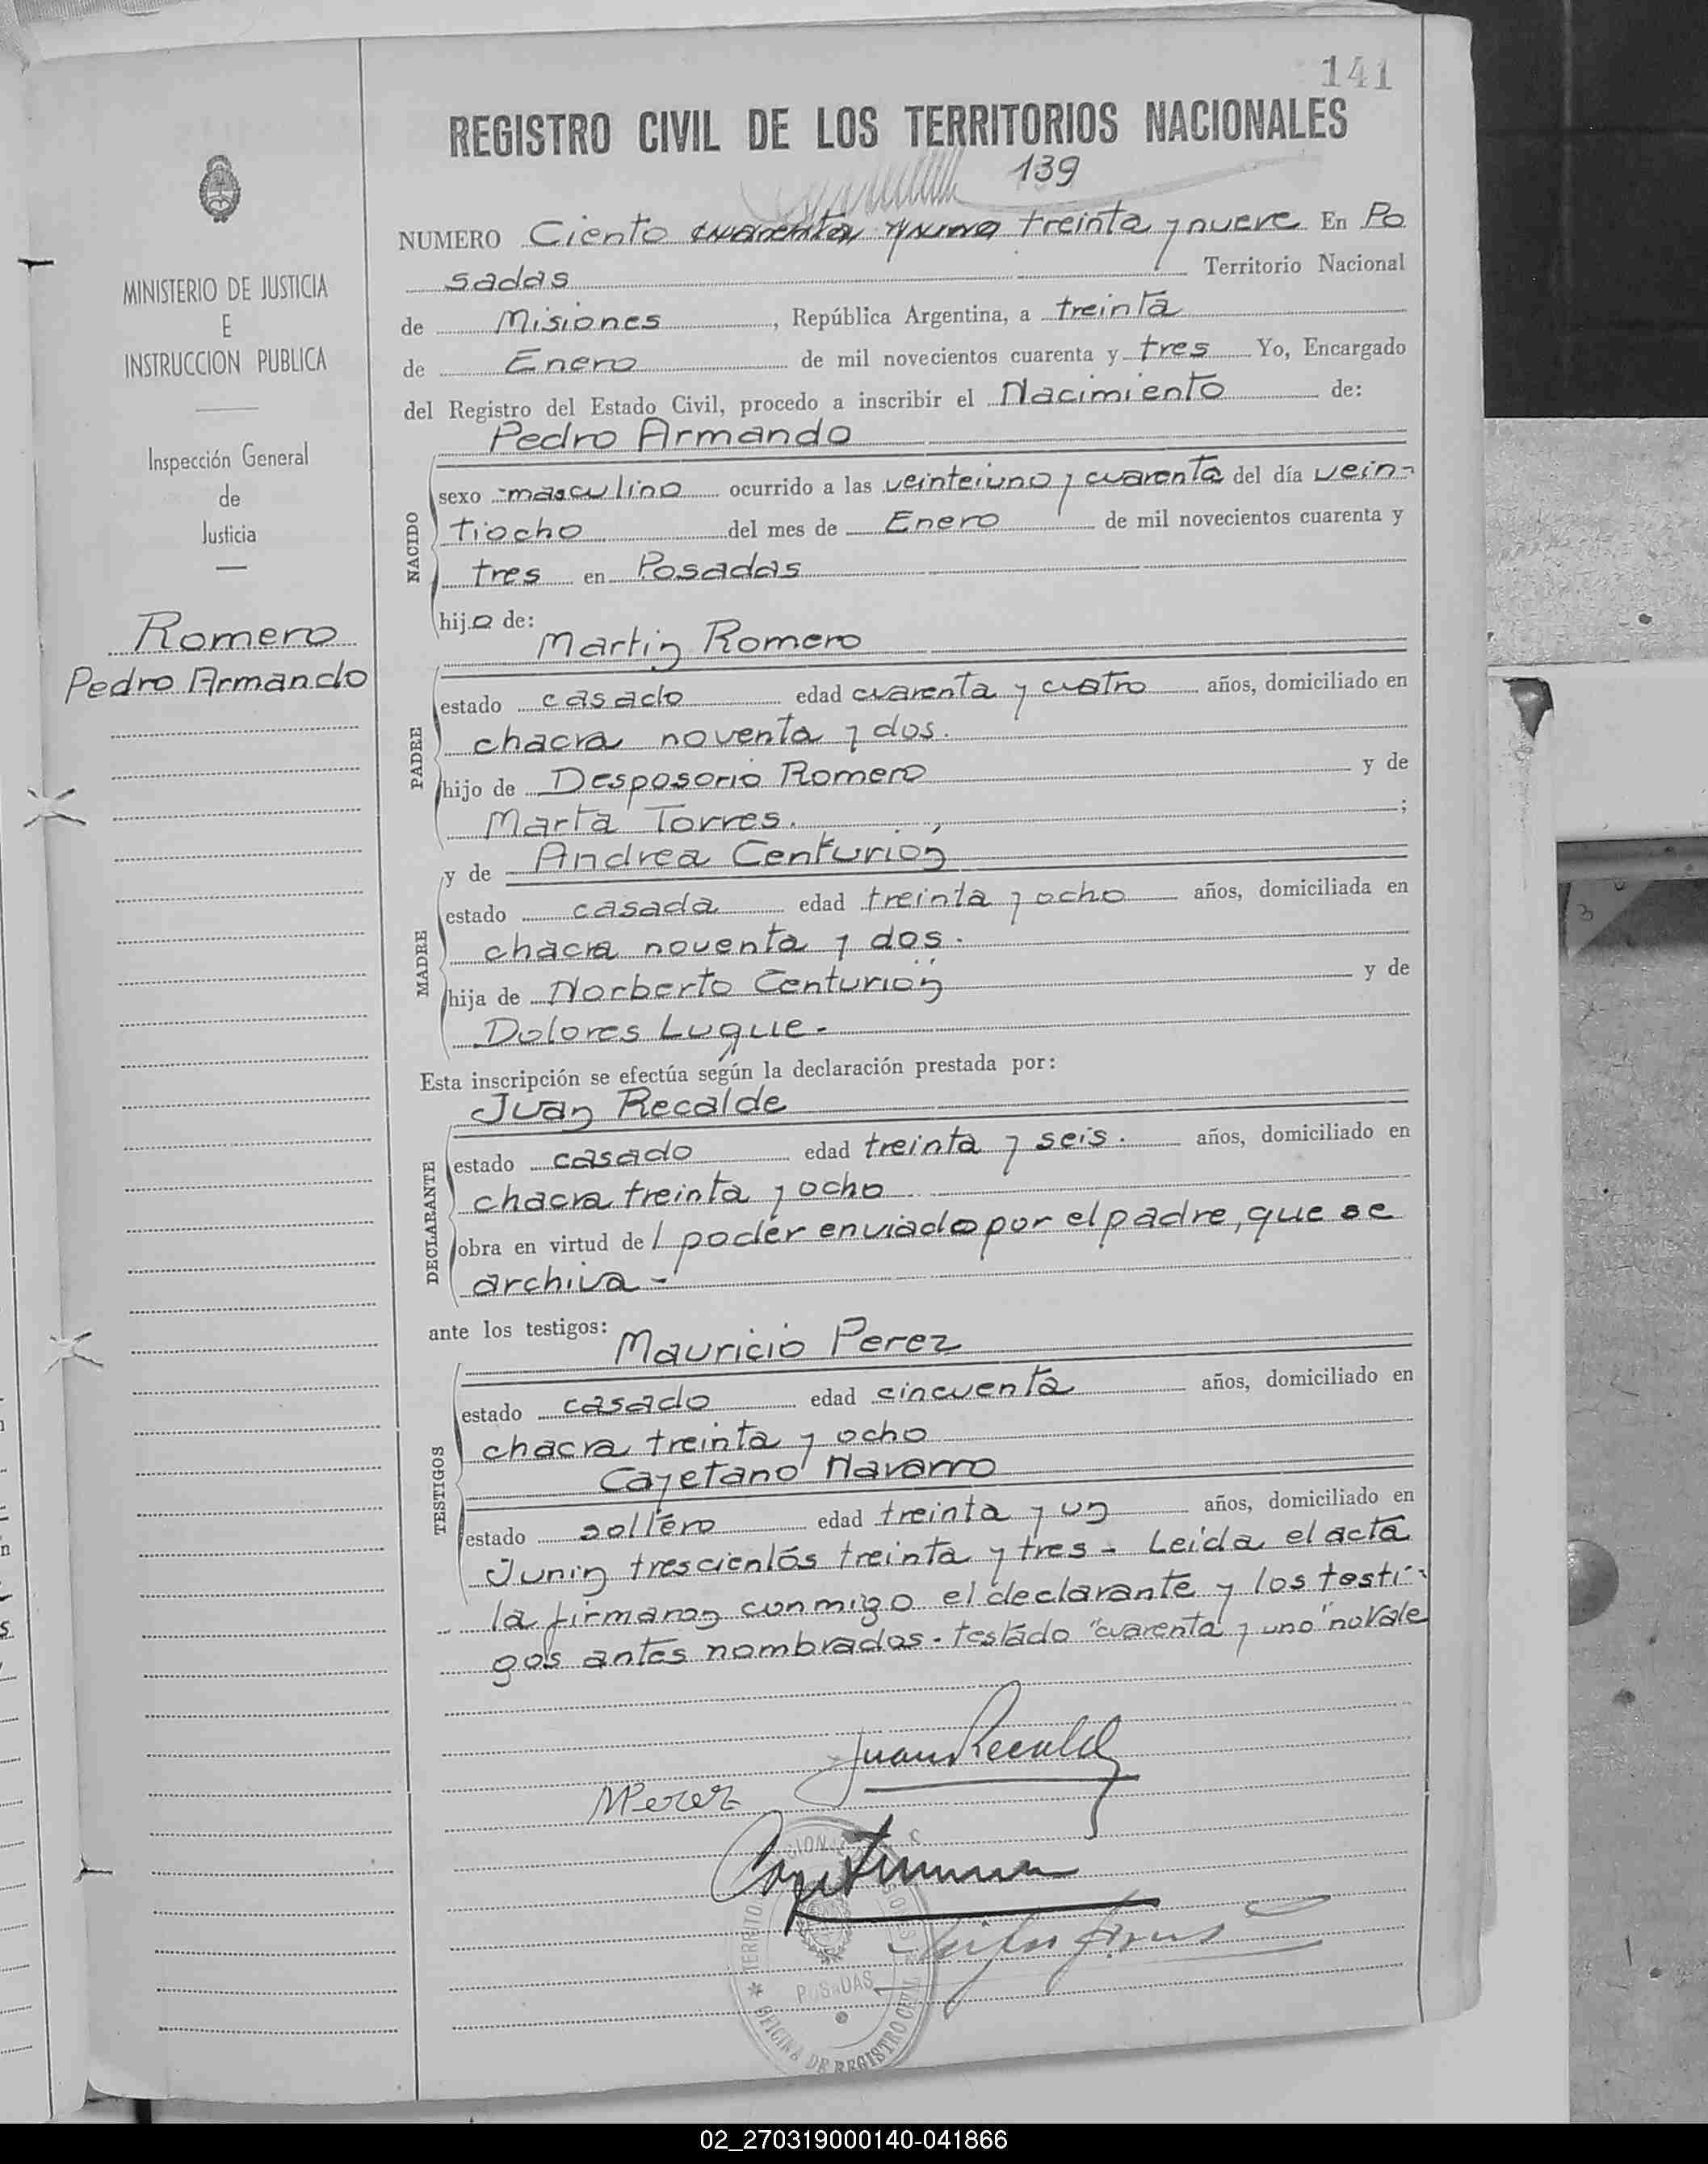 141
REGISTRO CIVIL DE LOS TERRITORIOS NACIONALES
139
NUMERO Ciento cuarenta y uno treinta y nueve En Po
sadas Territorio Nacional
de Misiones, República Argentina, a treinta
de Enero de mil novecientos cuarenta y tres Yo, Encargado
del Registro del Estado Civil, procedo a inscribir el Nacimiento de:
Pedro Armando
NACIDO
sexo masculino ocurrido a las veinteiuno y cuarenta del día vein-
tiocho del mes de Enero de mil novecientos cuarenta y
tres en Posadas
hijo de:
Martin Romero
PADRE
estado casado edad cuarenta y cuatro años, domiciliado en
chacra noventa y dos.
hijo de Desposorio Romero y de
Marta Torres. ;
y de Andrea Centurión
MADRE
estado casada edad treinta y ocho años, domiciliada en
chacra noventa y dos.
hija de Norberto Centurión y de
Dolores Luque.-
Esta inscripción se efectúa según la declaración prestada por:
Juan Recalde
DECLARANTE
estado casado edad treinta y seis. años, domiciliado en
chacra treinta y ocho
obra en virtud del poder enviado por el padre, que se
archiva-
ante los testigos:
Mauricio Perez
TESTIGOS
estado casado edad cincuenta años, domiciliado en
chacra treinta y ocho
Cayetano Navarro
estado soltero edad treinta y un años, domiciliado en
Junin trescientos treinta y tres- Leida el acta
la firmaron conmigo el declarante y los testi-
gos antes nombrados. testado "cuarenta y uno" no Vale
Juan Recalde
MPerez
TERRITO
POSADAS
OFICINA DE REGISTRO CIVIL
MINISTERIO DE JUSTICIA
E
INSTRUCCION PUBLICA
Inspección General
de
Justicia
Romero
Pedro Armando
02_270319000140-041866